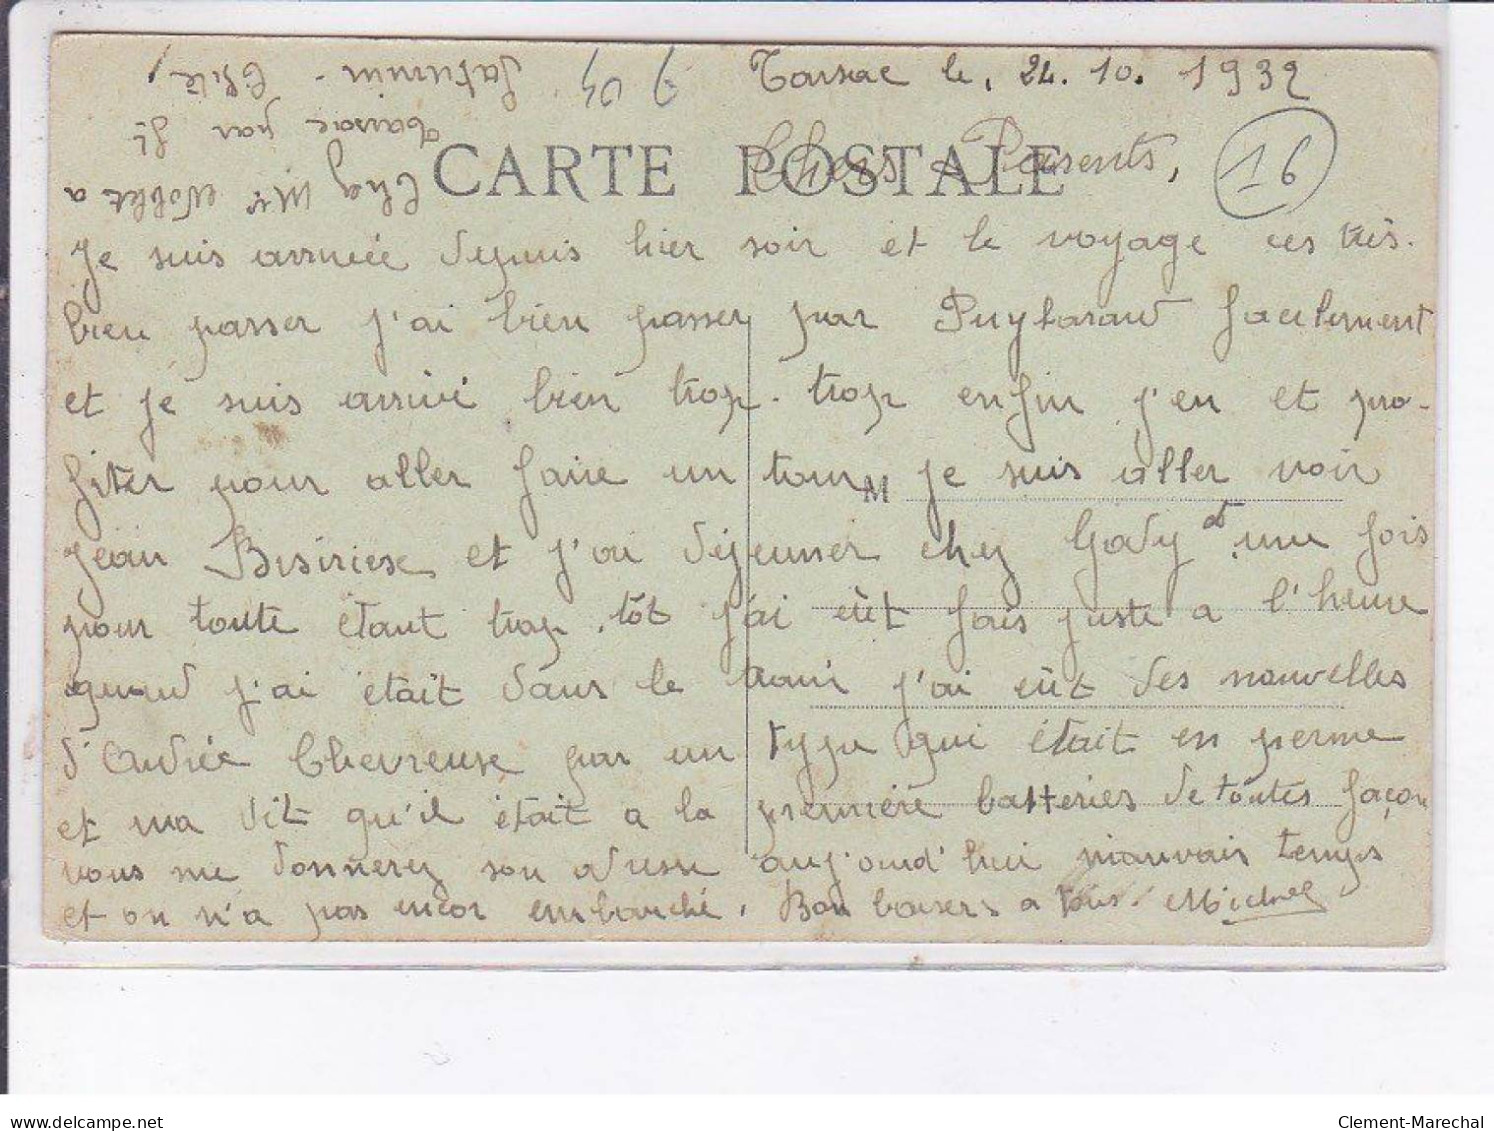 Torsac le, 24.10.1932
Chers Parents,
16
CARTE POSTALE
Chez Mr Noblet a
Torsac par St
Saturnin
Je suis arrivée depuis hier soir et le voyage ces très.
bien passer j'ai bien passer par Puylaraud facilement
et je suis arrivé bien trop. trop enfin j'en et pro-
fiter pour aller faire un tour je suis aller voir
M
jean et j'ai déjeuner chez Gady et une fois
pour toute étant trop. tôt j'ai eût fais juste a l'heure
quand j'ai était dans le train j'ai eût des nouvelles
d'Andrée Chevreuse par un type qui était en perme
et ma dit qu'il était a la première batteries de toutes façon
vous me donnerez son adresse aujourd'hui mauvais temps
et on n'a pas encor embauché. Bon baisers a tous. Michel
delcampe.net
Clement-Marechal